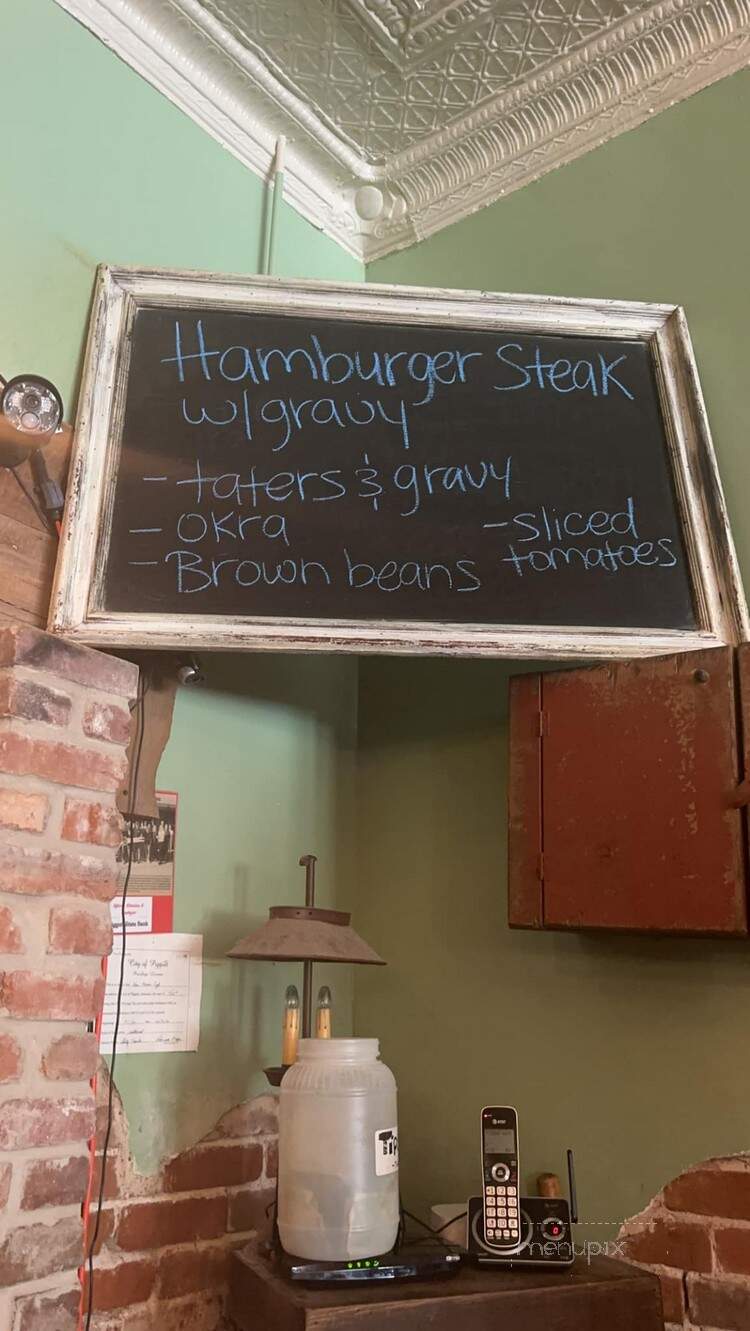 Hamburger Steak
w/gravy
- taters & gravy
- Okra
- Brown beans
- sliced
tomatoes
City of Piggott
AT&T
Tip
menupix